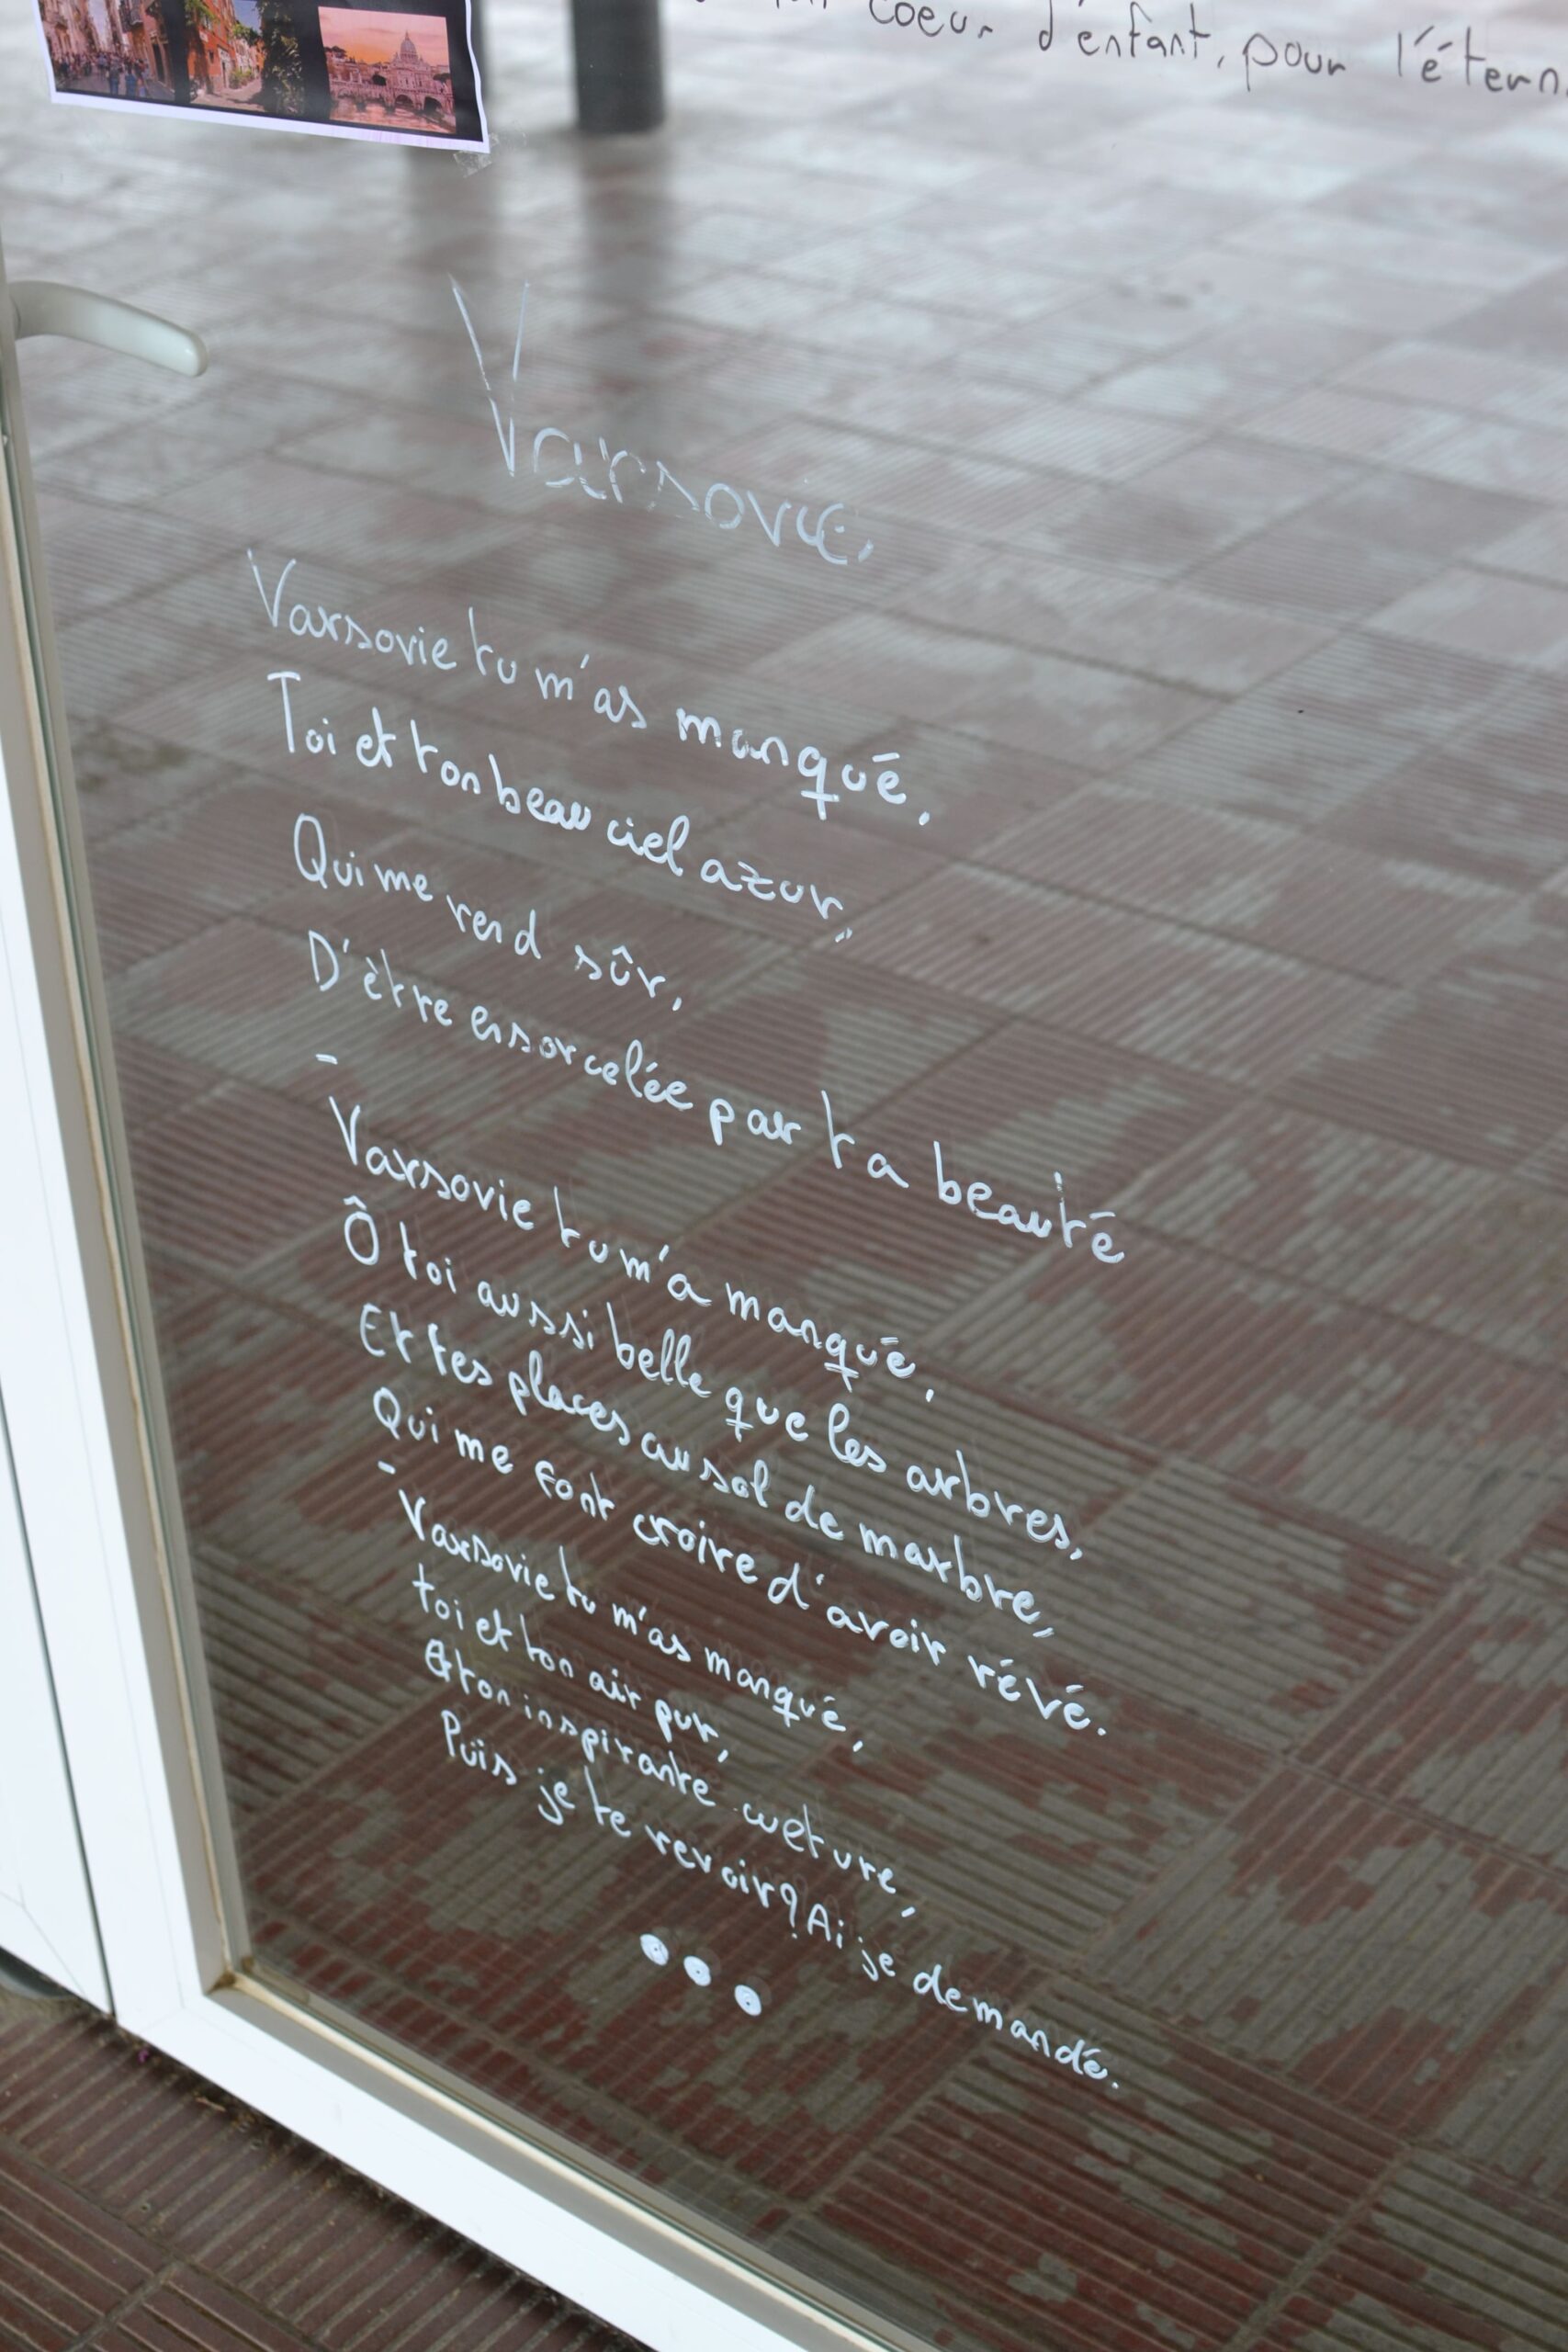 coeur d'enfant, pour l'étern
Varsovie,
Varsovie tu m'as manqué,
Toi et ton beau ciel azur,
Qui me rend sûr,
D'être ensorcelée par ta beauté
-
Varsovie tu m'a manqué,
Ô toi aussi belle que les arbres,
Et tes places au sol de marbre,
Qui me font croire d'avoir rêvé.
-
Varsovie tu m'as manqué,
toi et ton air pur,
Et ton inspirante cueture,
Puis je te revoir? Ai je demandé.
...